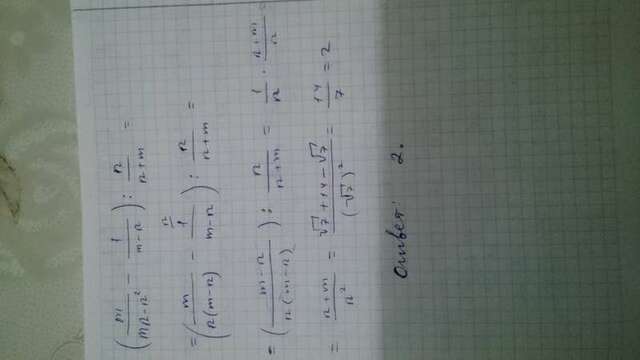 (m/(mn-n²) - 1/(m-n)) : n/(n+m) =
= (m/(n(m-n)) - 1ⁿ/(m-n)) : n/(n+m) =
= ((m-n)/(n(m-n))) : n/(n+m) = 1/n · (n+m)/n =
= (n+m)/n² = (√7+14-√7)/(√7)² = 14/7 = 2
Ответ: 2.